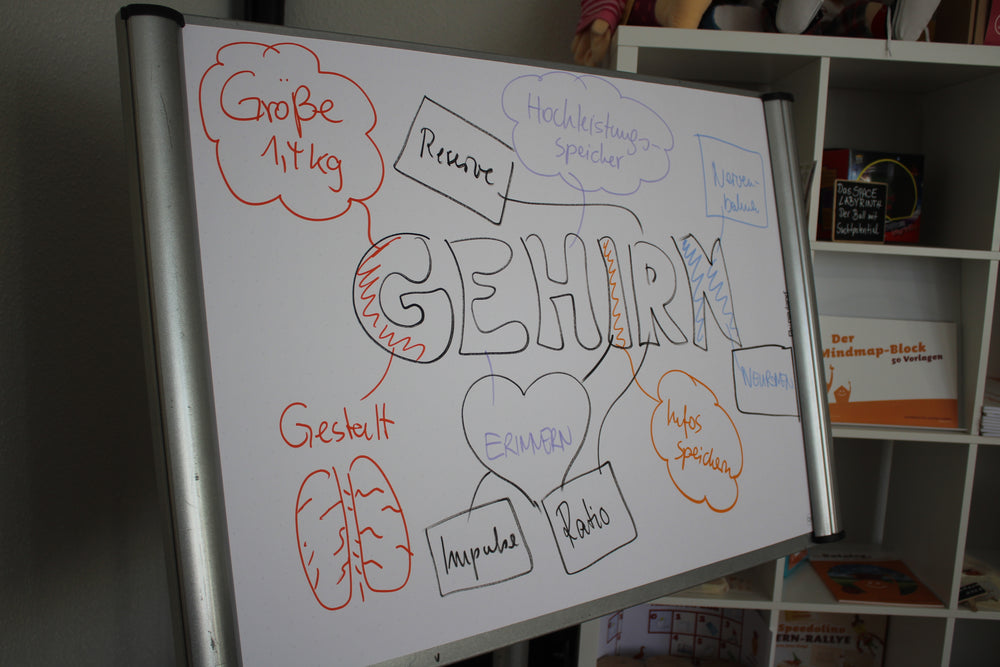 Größe
1,4 kg
Reserve
Hochleistungs-
speicher
Nerven-
bahnen
GEHIRN
Gestalt
ERINNERN
Infos
speichern
NEURONEN
Impulse
Ratio
Das SPACE
LABYRINTH
Der Ball mit
Suchtpotential
Der
Mindmap-Block
50 Vorlagen
Speedolino
ERN-RALLYE